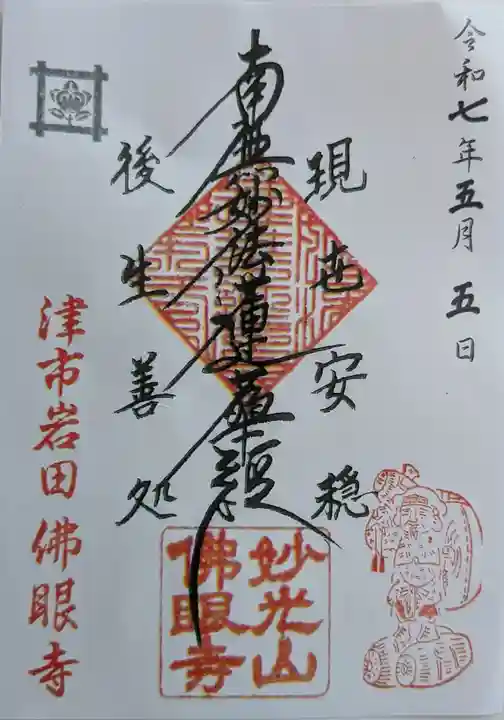 令和七年五月五日
現世安穏
南無妙法蓮華経
後生善処
津市岩田 佛眼寺
妙光山
佛眼寺